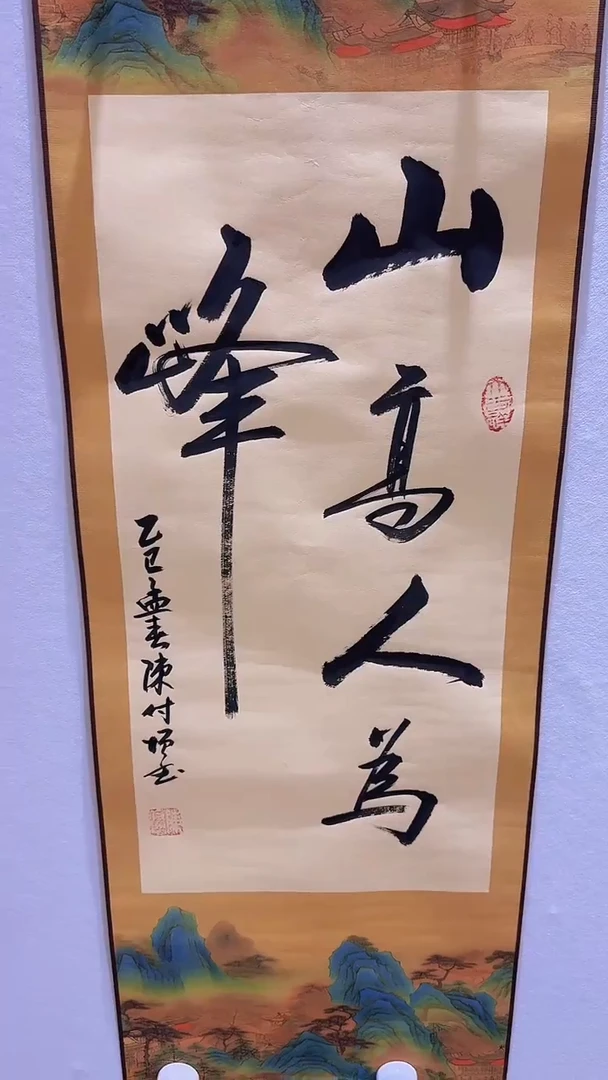 山高人為
峰
乙巳孟春陳付順書